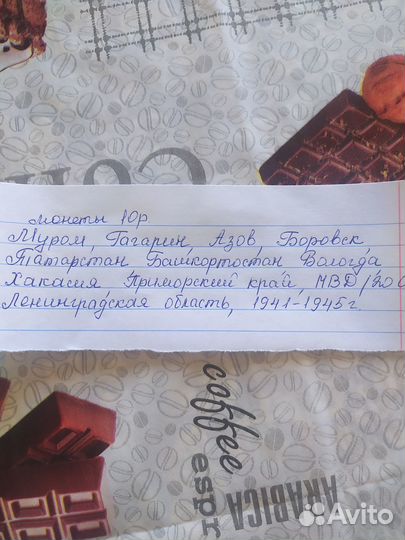 монеты 10р
Муром, Гагарин, Азов, Боровск
Татарстан Башкортостан Вологда
Хакасия, Приморский край, МВД/200
Ленинградская область, 1941-1945г.
coffee
espr
ARABICA
Avito